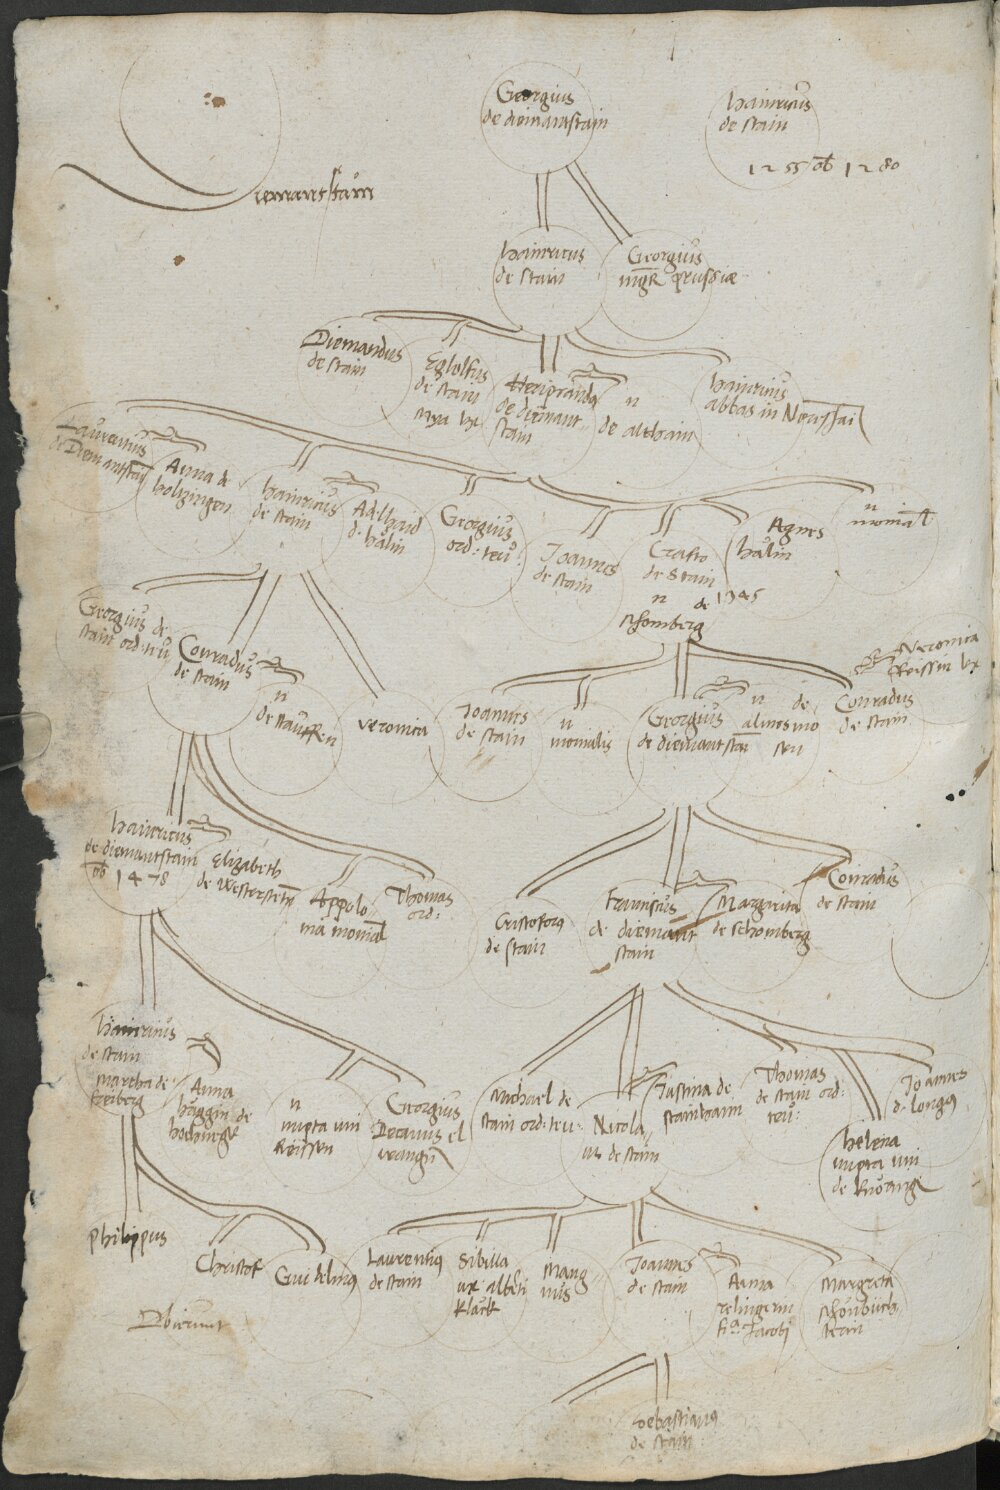 Georgius
de diemantstain
Hainricus
de stain
1255 ob 1280
Diemantstain
Hainricus
de stain
Georgius
mgr prussiae
Diemandus
de stain
Eglolfus
de stain
Heripranda
de diemant
stain
n
de althain
Hainricus
abbas in
Laurentius
de Diemantstain
Anna de
holtzingen
Hainricus
de stain
Adelhaid
d. hälin
Georgius
ord: teu:
Joannes
de stain
Crafto
de Stain
1345
n de
schomberg
Agnes
hälin
n
monial
Georgius de
stain ord: teu
Conradus
de stain
n
de stauffen
Veronica
Joannes
de stain
n
monialis
Georgius
de diemantstai
n de
Conradus
de stain
Veronica
Reissin ux
Hainricus
de diemantstain
ob 1478
Elizabeth
de Westerstetn
Appolo
nia monial
Thomas
ord:
Cristoforus
de stain
Franciscus
de diemant
stain
Margrita
de schomberg
Conradus
de stain
Hainricus
de stain
Martha de
freiberg
Anna
de
hochnegk
n
nupta uni
Reissen
Georgius
Decanus el
wangn
Michael de
stain ord: teu:
Nicola
us de stain
Justina de
Thomas
de stain ord:
teu:
Joannes
d. longus
Helena
nupta uni
de
Philippus
Christof
Guidelmus
Laurentius
de stain
Sibilla
ux alberti
klack
Mang
nus
Joannes
de stain
Anna
relingerin
fia Jacobi
Margreta
Obierunt
Sebastianus
de stain